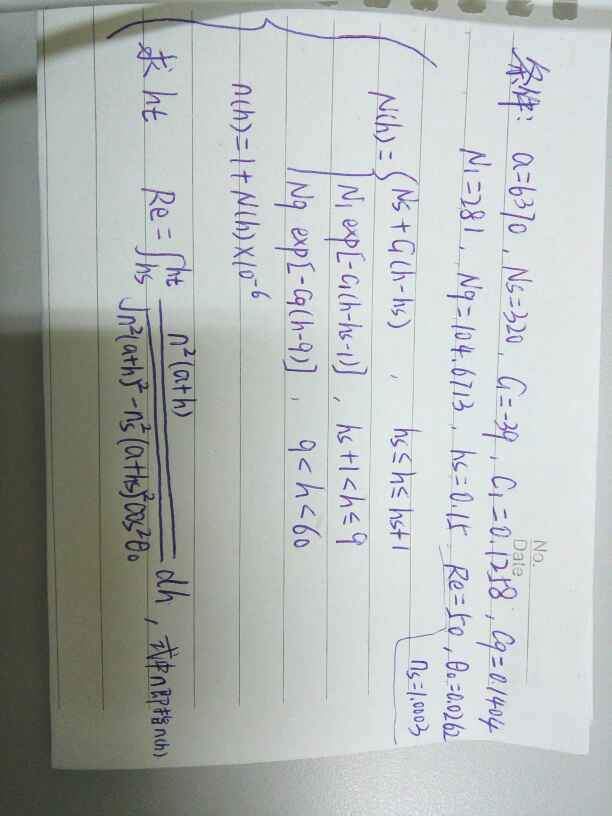 No.
Date
条件: a=6370, Ns=320, G=-39, C₁=0.1258, C9=0.1404
N₁=281, N9=104.6713, hs=0.15, Re=50, θ₀=0.0262
ns=1.0003
N(h)= { Ns+G(h-hs), hs≤h≤hs+1
N₁ exp[-C₁(h-hs-1)], hs+1<h≤9
N9 exp[-C9(h-9)], 9<h<60
n(h)=1+N(h)×10⁻⁶
求 ht Re=∫hs^ht n²(a+h) / √(n²(a+h)²-ns²(a+hs)²cos²θ₀) dh, 式中n即指n(h)